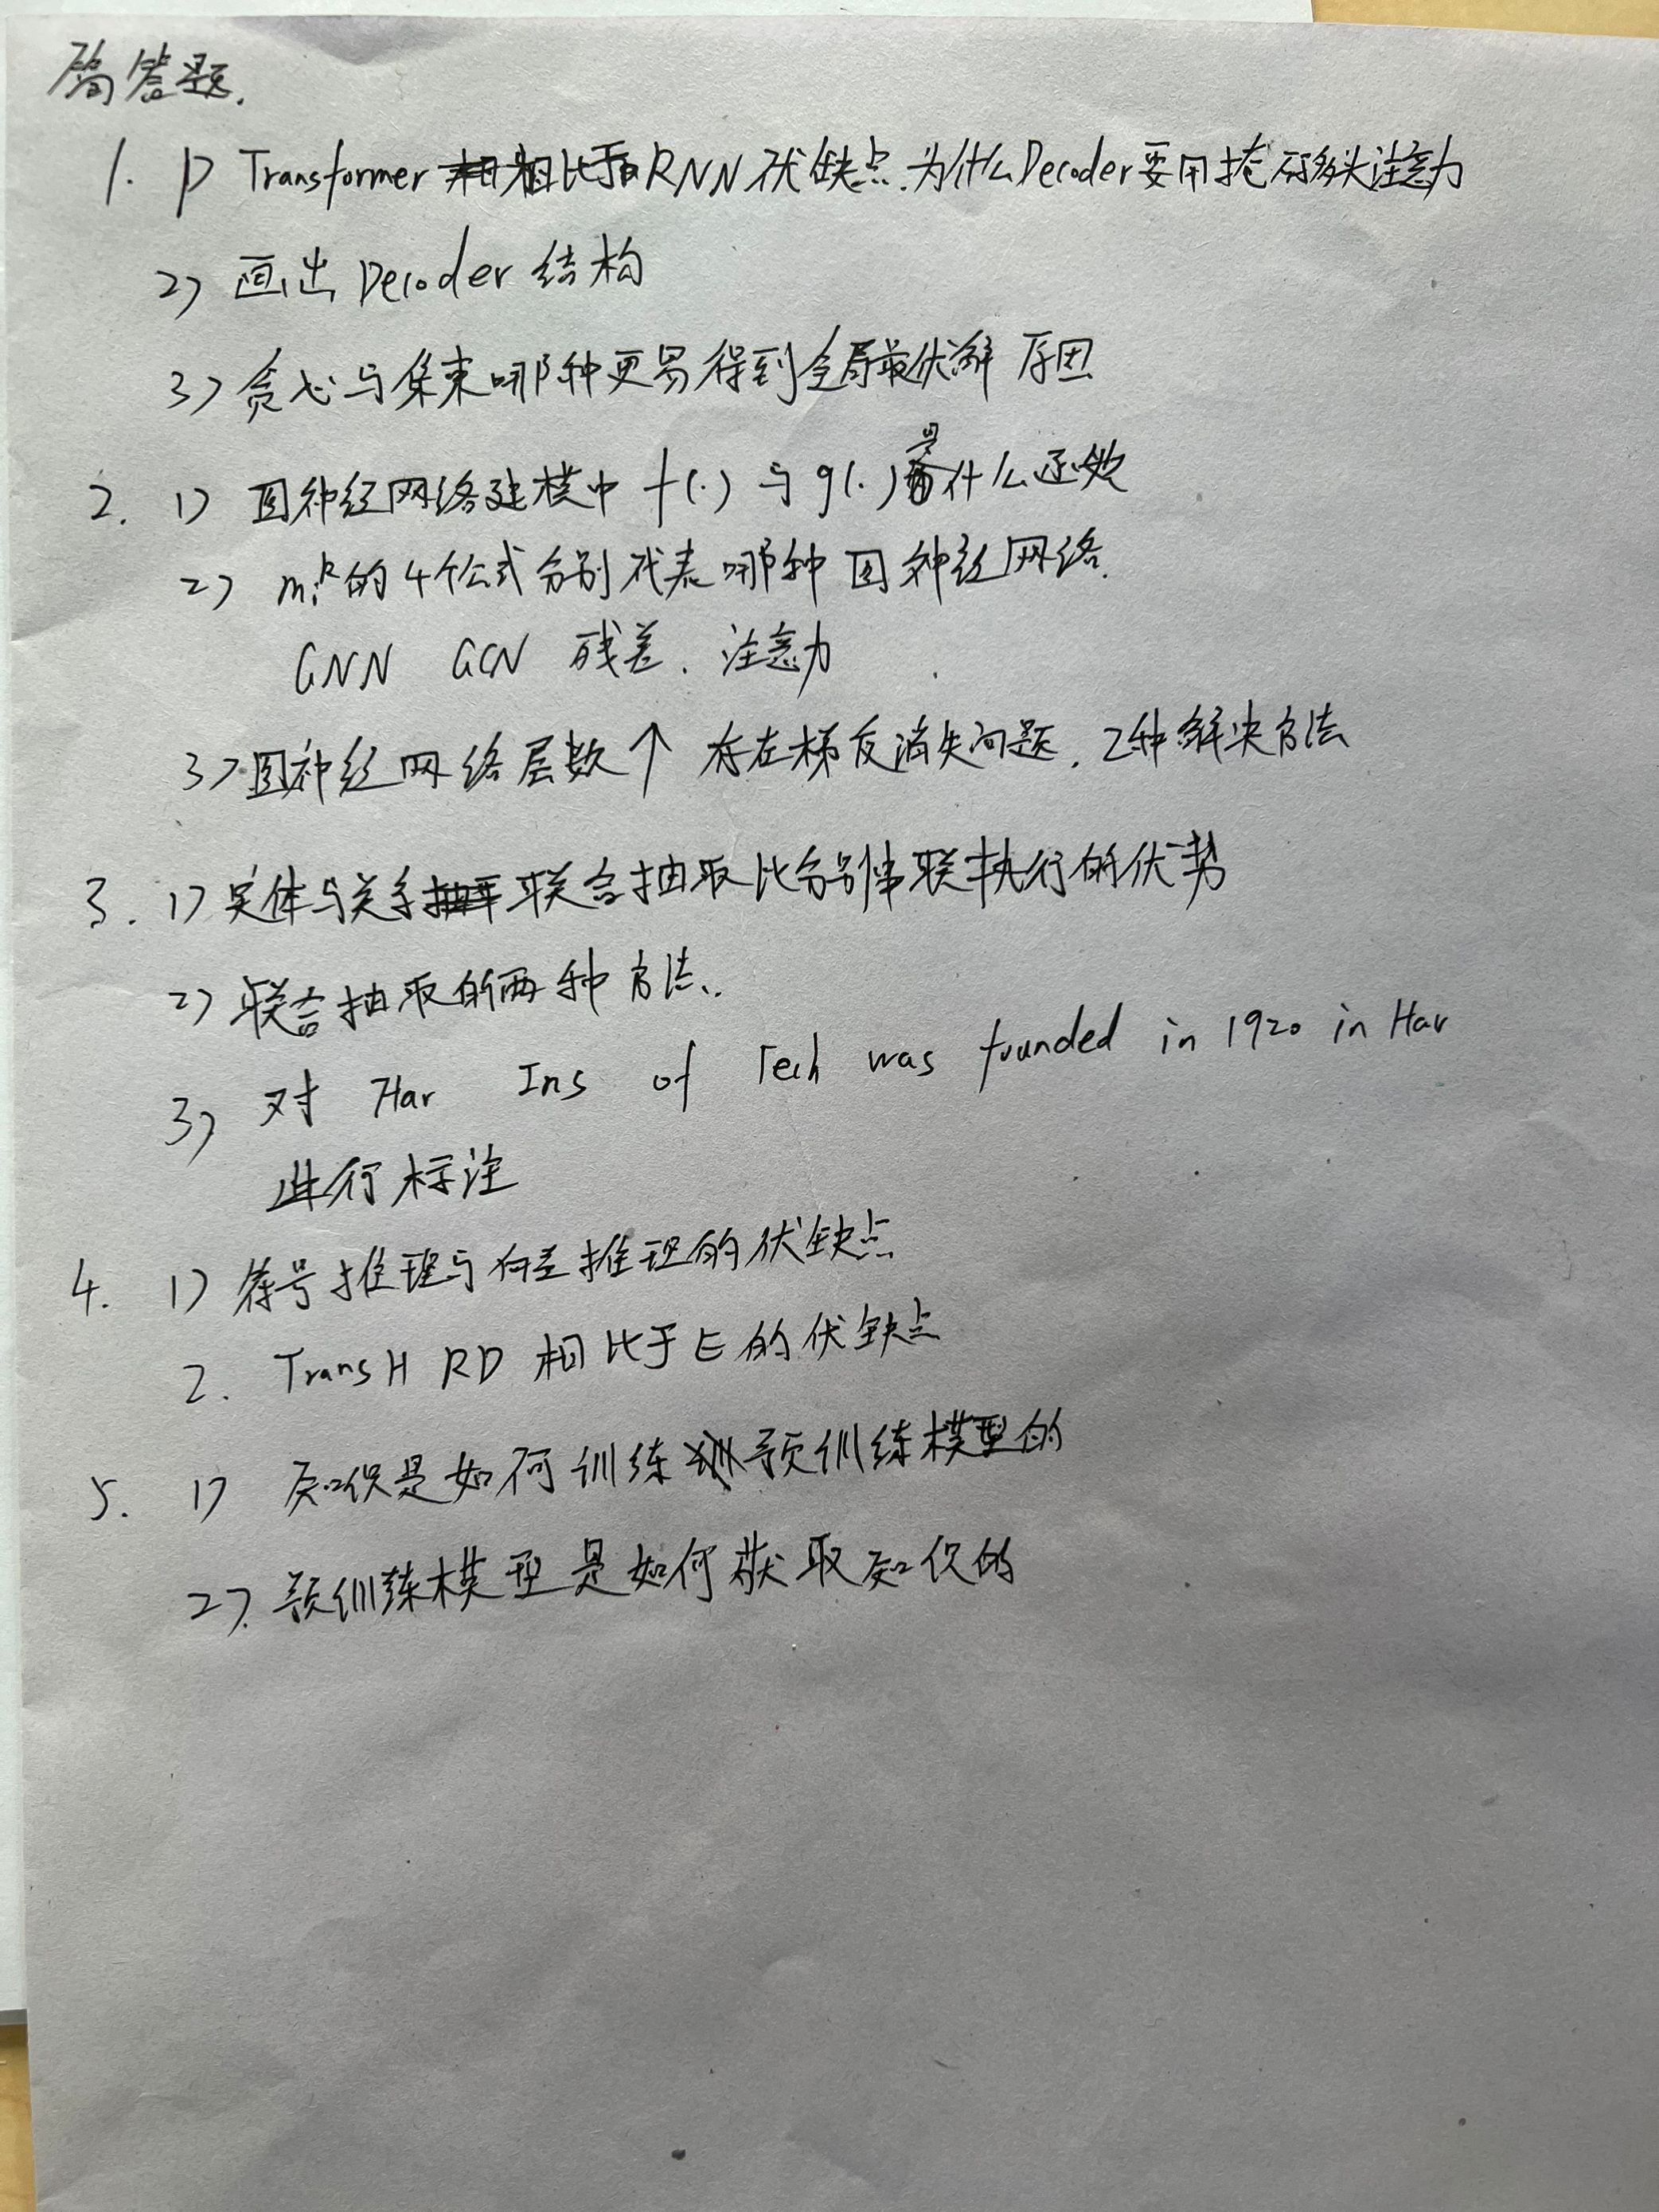 简答题.
1. 1) Transformer 相比于RNN优缺点.为什么Decoder要用掩码多头注意力
2) 画出 Decoder 结构
3) 贪心与集束哪种更易得到全局最优解 原因
2. 1) 图神经网络建模中 f(.) 与 g(.) 是什么函数
2) mᵢᵏ的4个公式分别代表哪种图神经网络.
GNN GCN 残差. 注意力
3) 图神经网络层数↑ 存在梯度消失问题. 2种解决方法
3. 1) 实体与关系联合抽取比分别串联执行的优势
2) 联合抽取的两种方法.
3) 对 Har Ins of Tech was founded in 1920 in Har
进行标注
4. 1) 符号推理与向量推理的优缺点
2. TransH RD 相比于E的优缺点
5. 1) 知识是如何训练预训练模型的
2). 预训练模型是如何获取知识的